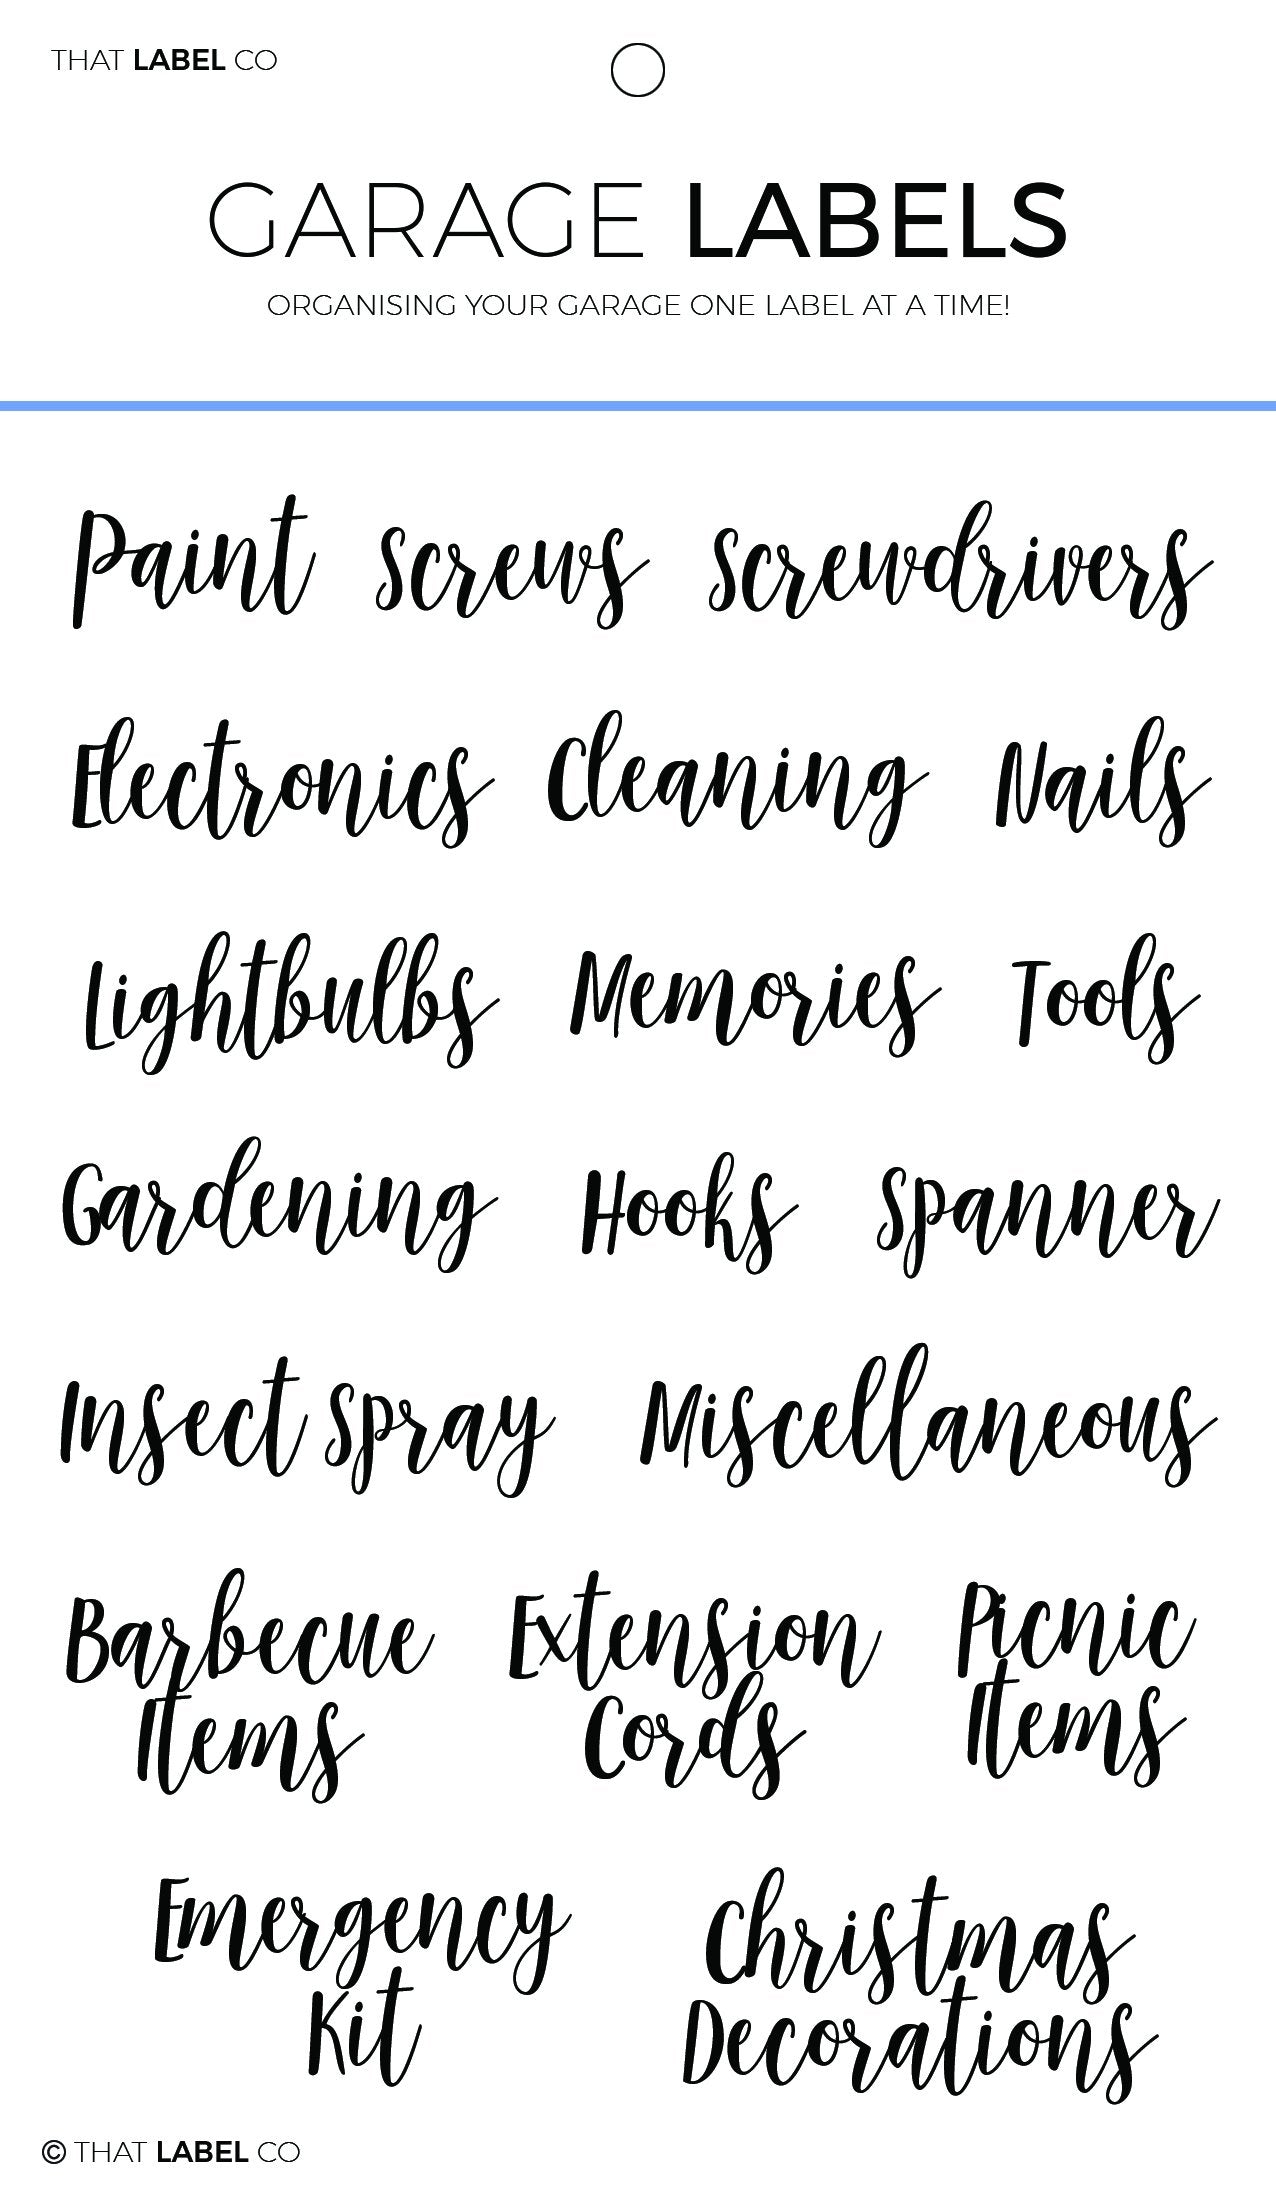 THAT LABEL CO
GARAGE LABELS
ORGANISING YOUR GARAGE ONE LABEL AT A TIME!
Paint Screws Screwdrivers
Electronics Cleaning Nails
Lightbulbs Memories Tools
Gardening Hooks Spanner
Insect Spray Miscellaneous
Barbecue
Items
Extension
Cords
Picnic
Items
Emergency
Kit
Christmas
Decorations
© THAT LABEL CO